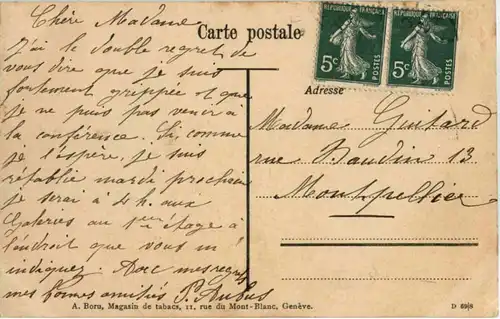 Chère Madame
Carte postale
J'ai le double regret de
vous dire que je suis
fortement grippée et que
je ne puis pas venir à
la conférence. Si, comme
je l'espère, je suis
rétablie mardi prochain
je serai à 4 h. aux
Galeries au 1er étage à
l'endroit que vous m'
indiquez. Avec mes regrets
mes bonnes amitiés
RÉPUBLIQUE FRANÇAISE
5c POSTES
RÉPUBLIQUE FRANÇAISE
5c POSTES
Adresse
Madame Guitard
rue Baudin 13
Montpellier
A. Boru, Magasin de tabacs, 11, rue du Mont-Blanc, Genève.